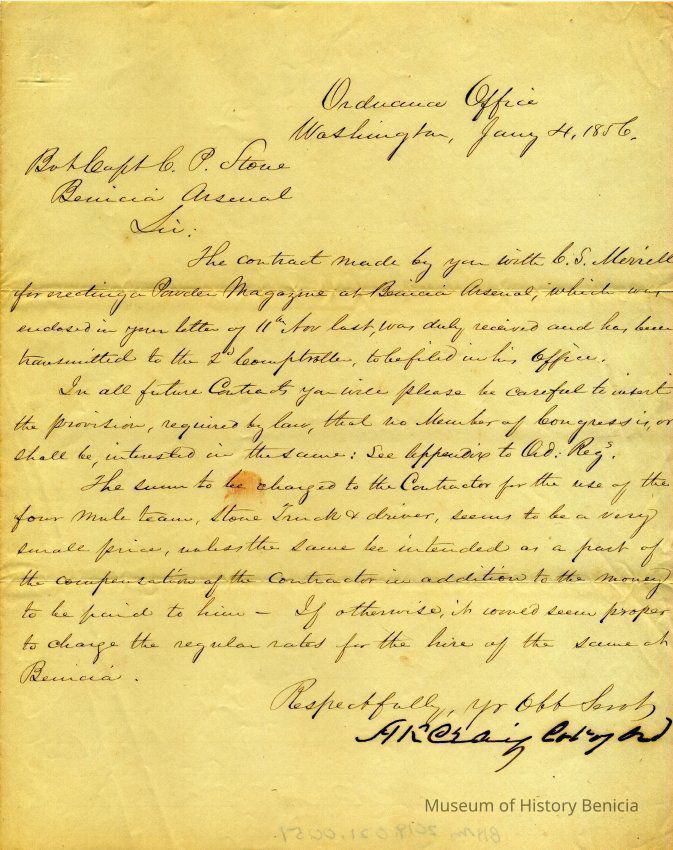 Ordnance Office
Washington, Jany 4, 1856.
Bvt Capt C. P. Stone
Benicia Arsenal
Sir:
The contract made by you with C. S. Merrill
for erecting a Powder Magazine at Benicia Arsenal, which was
enclosed in your letter of 11th Nov last, was duly received and has been
transmitted to the 2d Comptroller, to be filed in his Office.
In all future Contracts you will please be careful to insert
the provision, required by law, that no Member of Congress is, or
shall be, interested in the same: See Appendix to Ord: Regs.
The sum to be charged to the Contractor for the use of the
four mule team, Stone Truck & driver, seems to be a very
small price, unless the same be intended as a part of
the compensation of the Contractor in addition to the money
to be paid to him — If otherwise, it would seem proper
to charge the regular rates for the hire of the same at
Benicia.
Respectfully, Yr Obt Servt
H K Craig Col of Ord
Museum of History Benicia
BHM 2019.021.0051